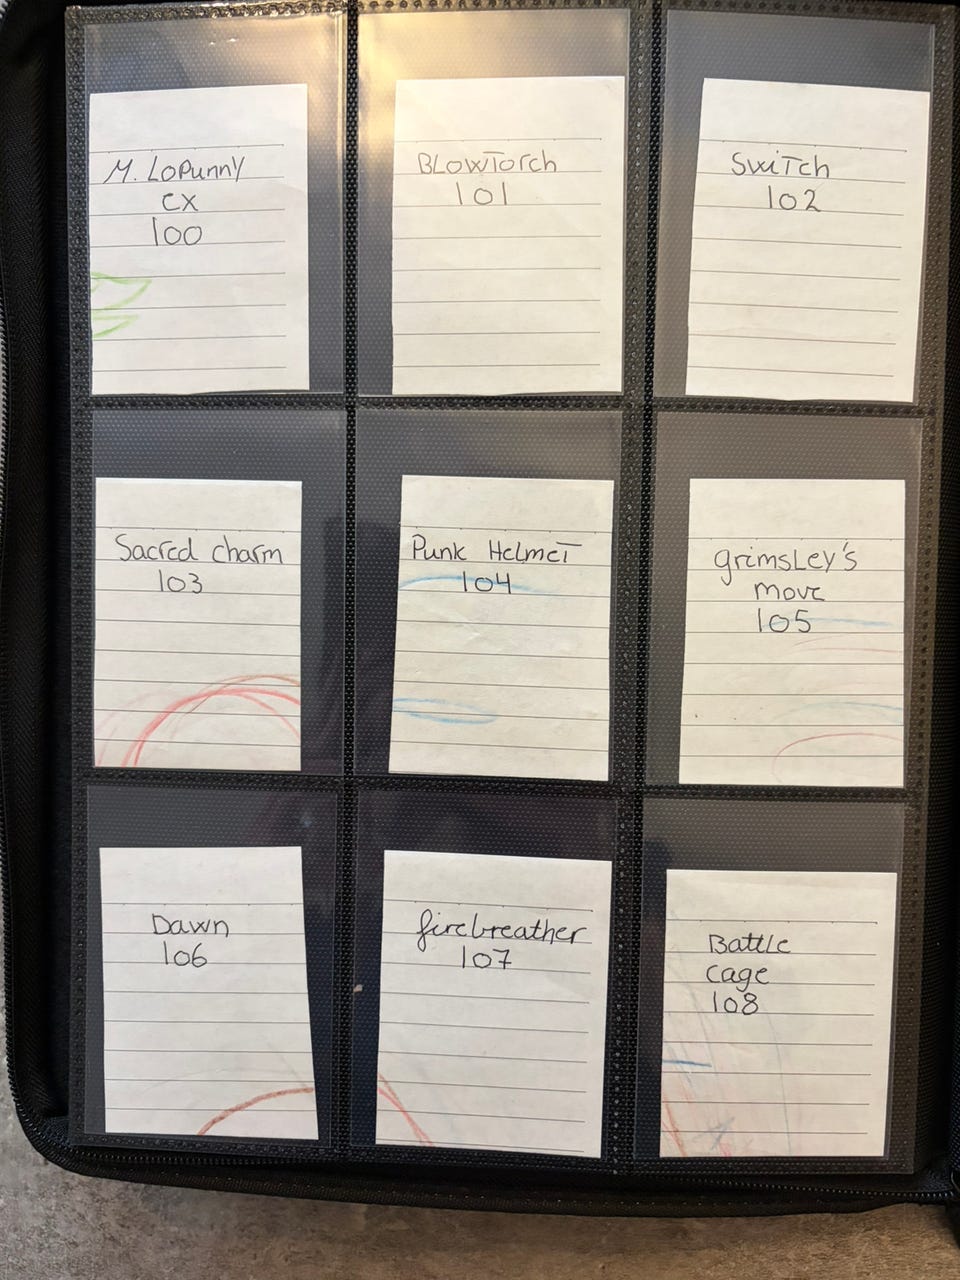 M. Lopunny
ex
100
Blowtorch
101
Switch
102
Sacred charm
103
Punk Helmet
104
grimsley's
move
105
Dawn
106
firebreather
107
Battle
cage
108